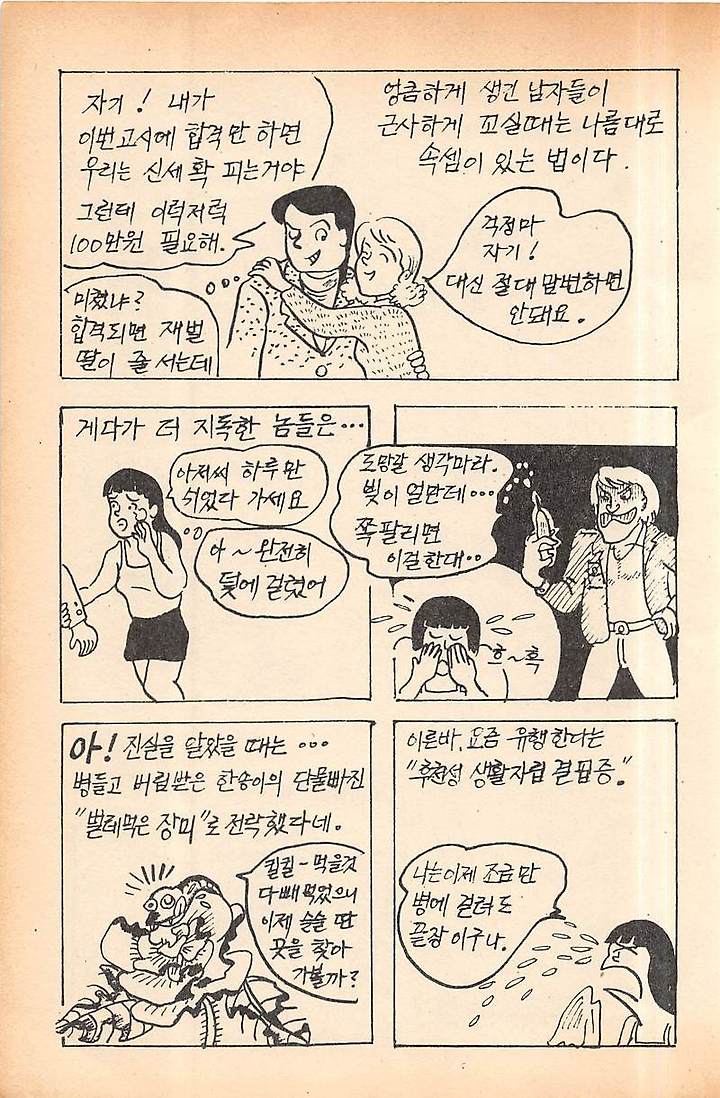 자기! 내가
이번고시에 합격만 하면
우리는 신세 확 피는거야
그런데 이럭저럭
100만원 필요해.
엉큼하게 생긴 남자들이
근사하게 꼬실때는 나름대로
속셈이 있는 법이다.
걱정마
자기!
대신 절대 맘변하면
안돼요.
미쳤냐?
합격되면 재벌
딸이 줄 서는데
게다가 더 지독한 놈들은…
아저씨 하루만
쉬었다 가세요
아~완전히
덫에 걸렸어
도망갈 생각마라.
빚이 얼만데…
쪽팔리면
이걸한대..
흐~흑
아! 진실을 알았을 때는…
병들고 버림받은 한송이의 단물빠진
"벌레먹은 장미"로 전락했다네.
낄낄-먹을것
다빼먹었으니
이제 슬슬 딴
곳을 찾아
가볼까?
이른바, 요즘 유행한다는
"후천성 생활자립 결핍증."
나는이제 조금만
병에 걸려도
끝장이구나.